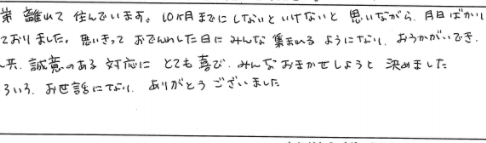 弟 離れて 住んでいます。10ヶ月までにしないといけないと 思いながら、月日ばかり
ておりました。思いきって おでんわした日に みんな 集まれる ようになり、おうかがいでき、
共、誠意のある 対応に とても 喜び、みんなおまかせしようと 決めました
ろいろ、お世話になり、ありがとう ございました